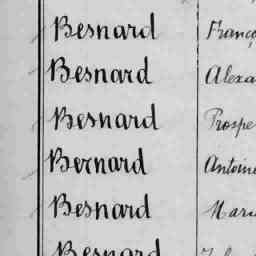 Besnard Franço
Besnard Alexa
Besnard Prospe
Bernard Antoine
Besnard Mari
Besnard